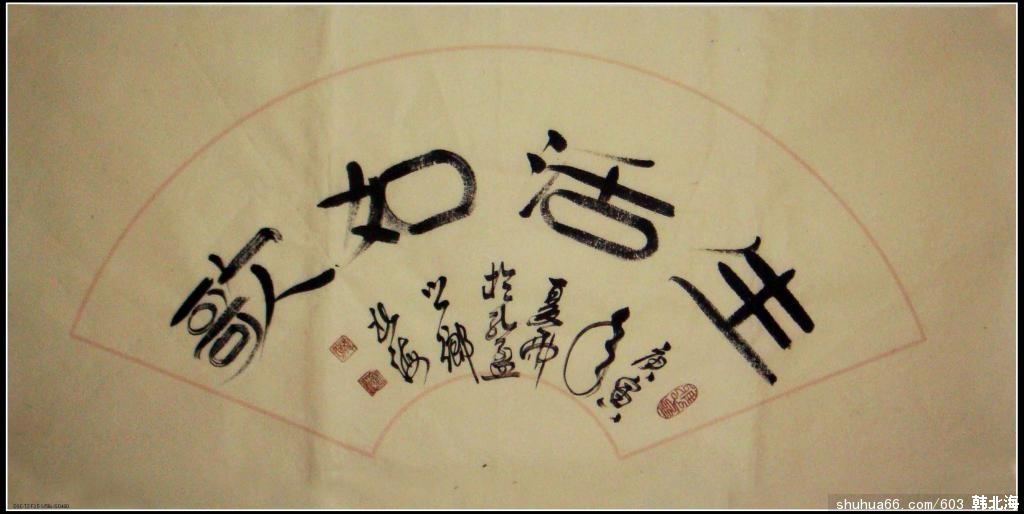 生活如歌
庚寅
年
夏雨
於孔孟
之鄉
北海
shuhua66.com/603 韩北海